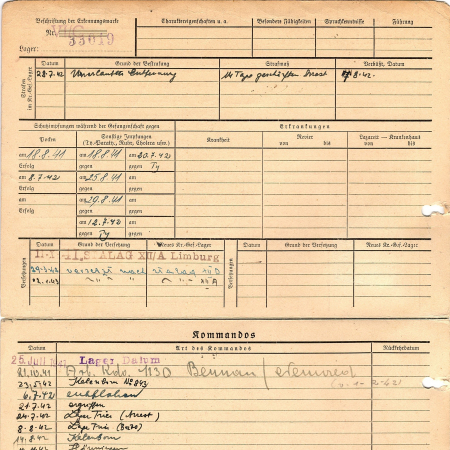 Beschriftung der Erkennungsmarke
Nr. 33019
Lager:
Charaktereigenschaften u. a.
Besonden Fähigkeiten
Sprachkenntnisse
Führung
Strafen im Kr.-Gef.-Lager
Datum
Grund der Bestrafung
Strafmaß
Verbüßt, Datum
28.7.42
Unerlaubte Entfernung
14 Tage geschärften Arrest
8.42.
Schutzimpfungen während der Gefangenschaft gegen
Erkrankungen
Pocken
Sonstige Impfungen
(Ty.-Paraty., Ruhr, Cholera usw.)
Krankheit
Revier
von bis
Lazarett — Krankenhaus
von bis
am 18.8.41
am 18.8.41
am 20.7.42
Erfolg
gegen
gegen Ty
am 8.7.42
am 25.8.41
am
Erfolg
gegen
gegen
am
am 29.8.41
am
Erfolg
gegen
gegen
am
am 12.7.42
am
Erfolg
gegen Ty
gegen
Versetzungen
Datum
Grund der Versetzung
Neues Kr.-Gef.-Lager
Versetzungen
Datum
Grund der Versetzung
Neues Kr.-Gef.-Lager
STALAG XII/A Limburg
versetzt nach Stalag XII D
Kommandos
Datum
Art des Kommandos
Rückkehrdatum
25. Juli
Lager Datum
21.10.41
Arb. Kdo. 1130
Kalenborn No 843
6.7.42
entflohen
21.7.42
ergriffen
24.7.42
Lager Trier (Arrest)
8.8.42
Lager Trier
14.8.42
Kalenborn